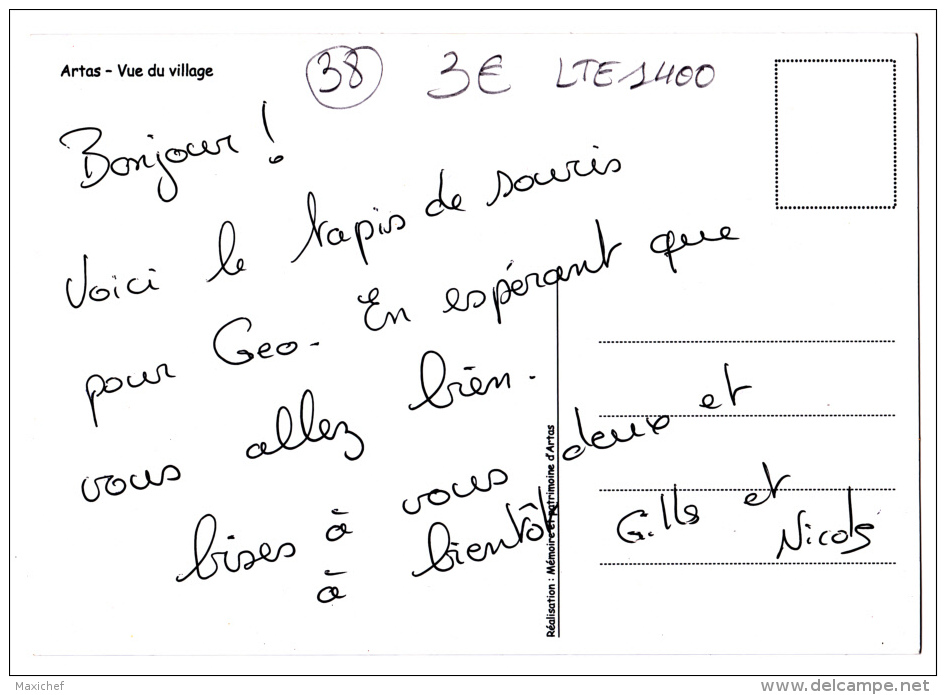 Artas - Vue du village
38 3€ LTE1400
Bonjour !
Voici le tapis de souris
pour Geo. En espérant que
vous allez bien.
bises à vous deux et
à bientôt
Gilles et
Nicole
Réalisation : Mémoire et patrimoine d'Artas
Maxichef
delcampe.net